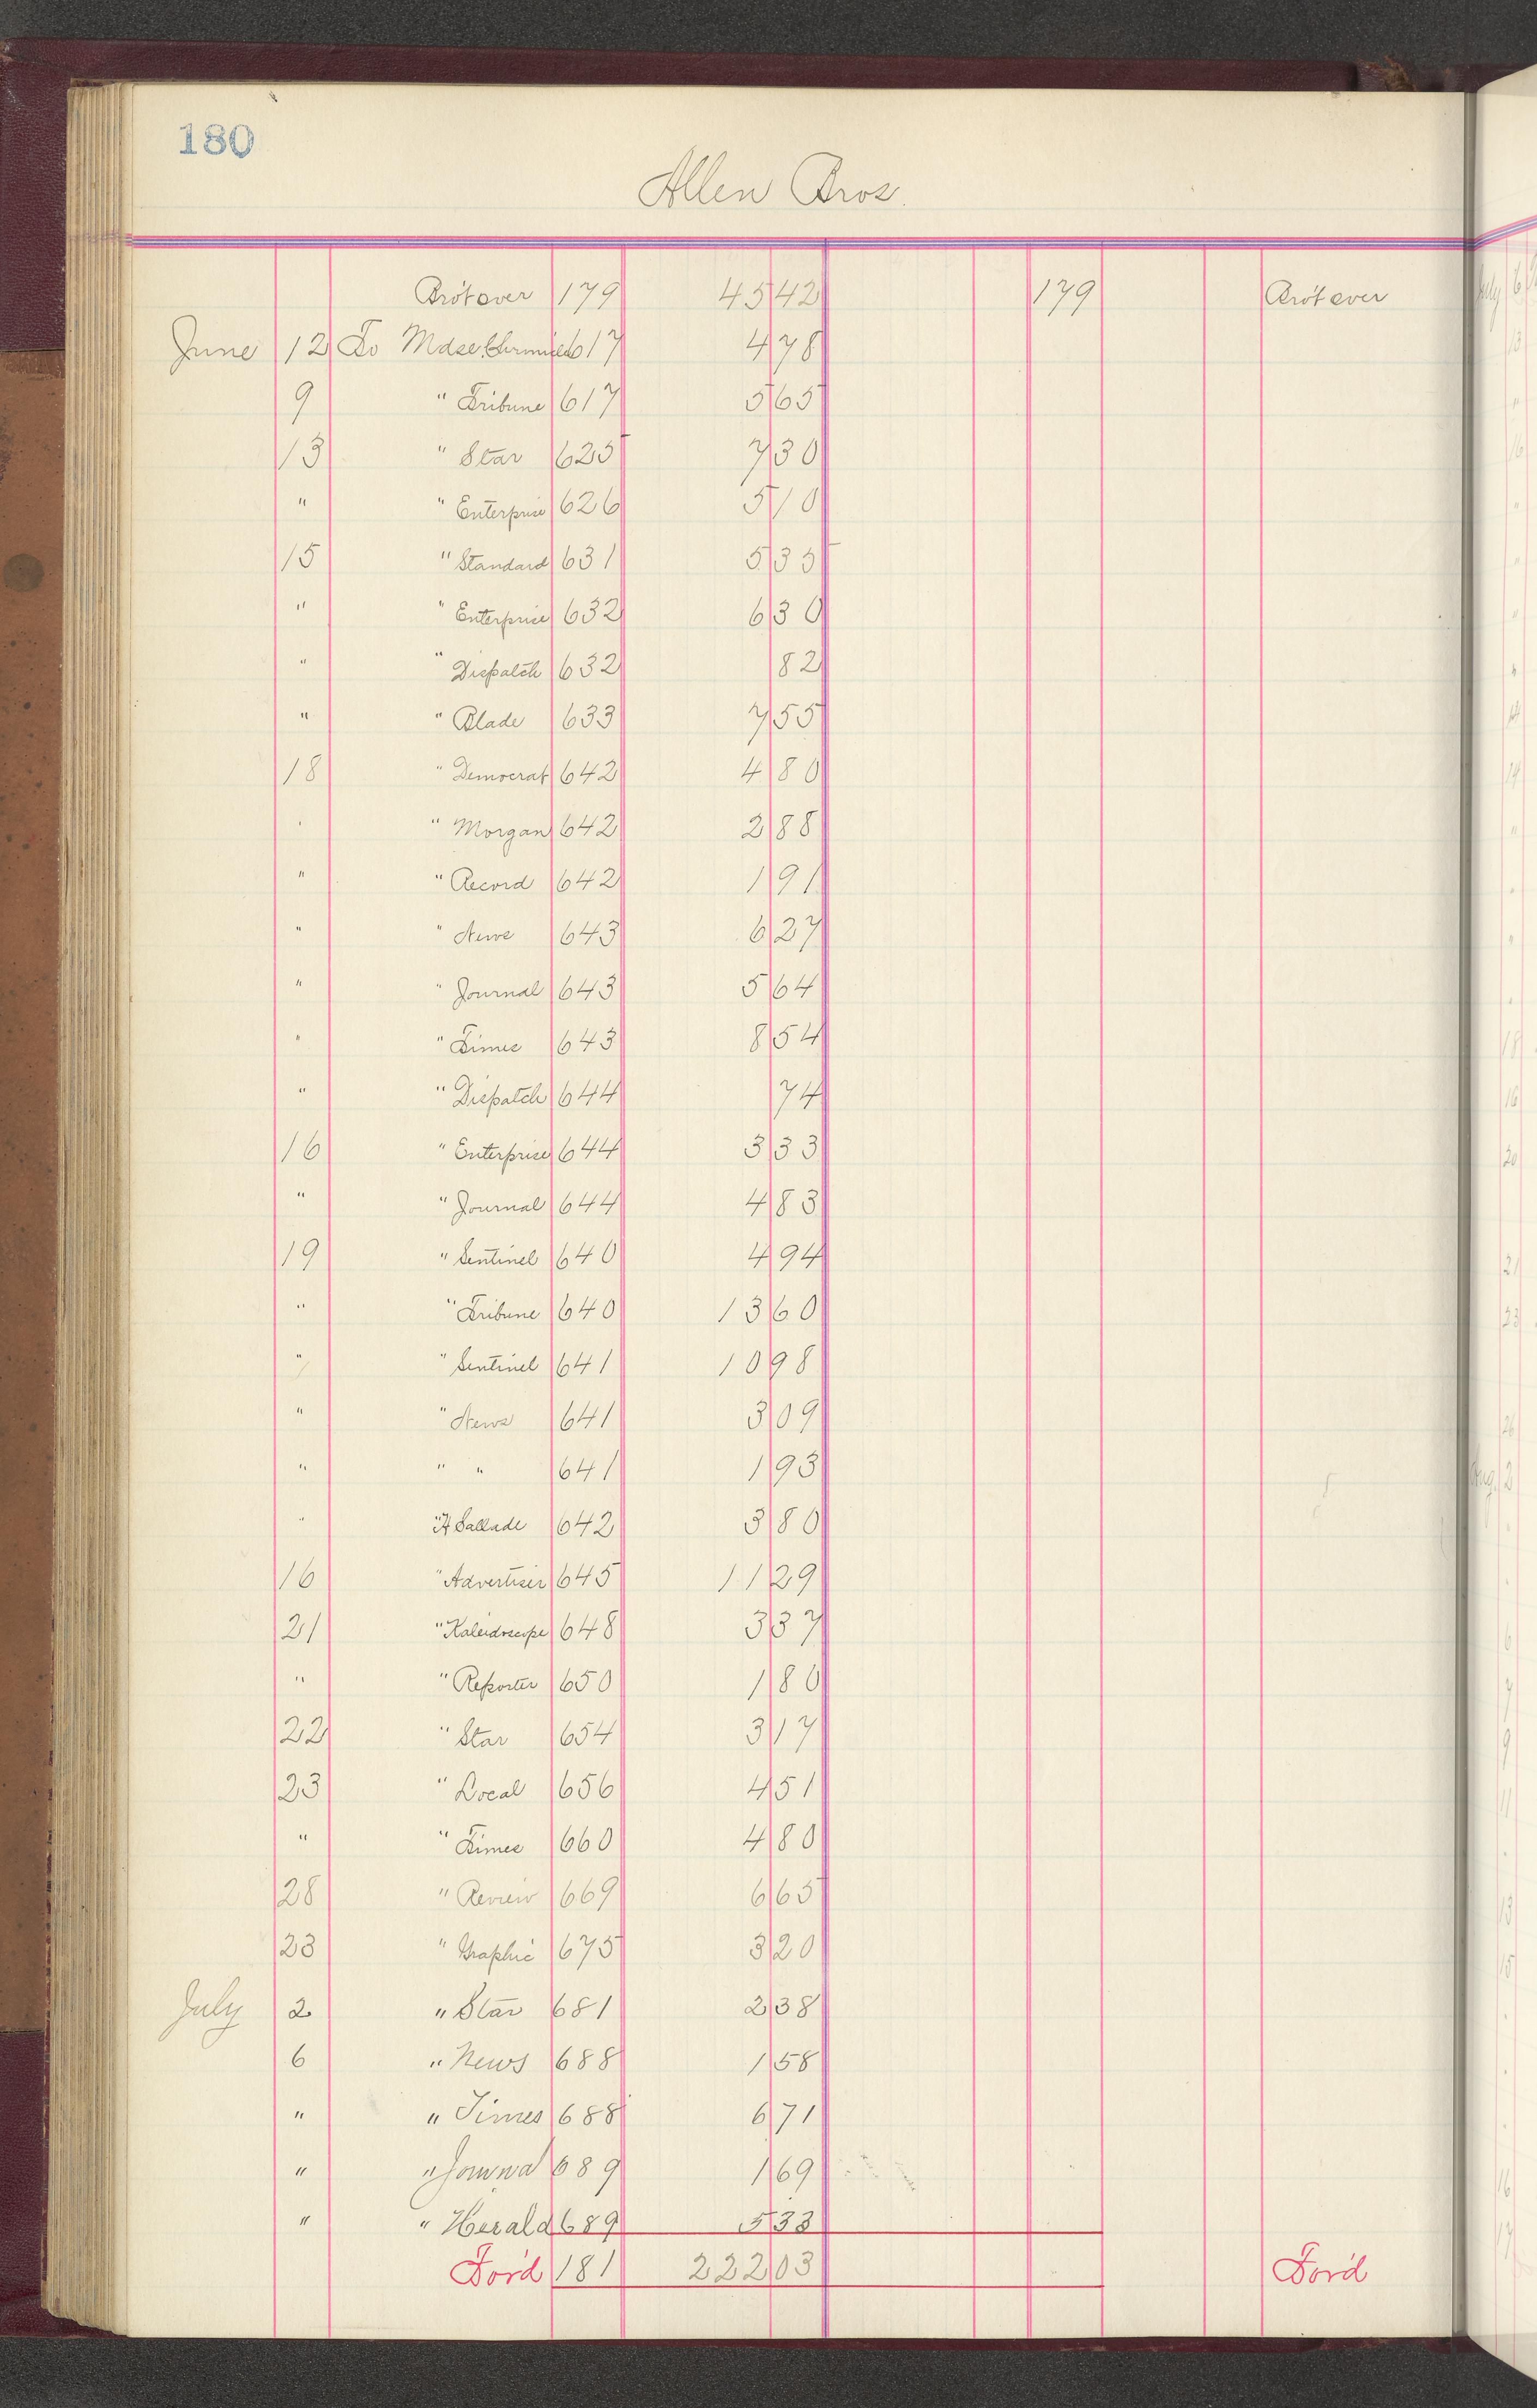 180
Allen Bros.
Bro't over 179 45 42 179 Bro't over
June 12 To Mdse. Chronicle 617 4 78
9 " Tribune 617 5 65
13 " Star 625 7 30
" " Enterprise 626 5 10
15 " Standard 631 5 35
" " Enterprise 632 6 30
" " Dispatch 632 82
" " Blade 633 7 55
18 " Democrat 642 4 80
" " Morgan 642 2 88
" " Record 642 1 91
" " News 643 6 27
" " Journal 643 5 64
" " Times 643 8 54
" " Dispatch 644 74
16 " Enterprise 644 3 33
" " Journal 644 4 83
19 " Sentinel 640 4 94
" " Tribune 640 13 60
" " Sentinel 641 10 98
" " News 641 3 09
" " " 641 1 93
" " A Sallade 642 3 80
16 " Advertiser 645 11 29
21 " Kaleidoscope 648 3 37
" " Reporter 650 1 80
22 " Star 654 3 17
23 " Local 656 4 51
" " Times 660 4 80
28 " Review 669 6 65
23 " Graphic 675 3 20
July 2 " Star 681 2 38
6 " News 688 1 58
" " Times 688 6 71
" " Journal 689 1 69
" " Herald 689 5 33
For'd 181 222 03 For'd